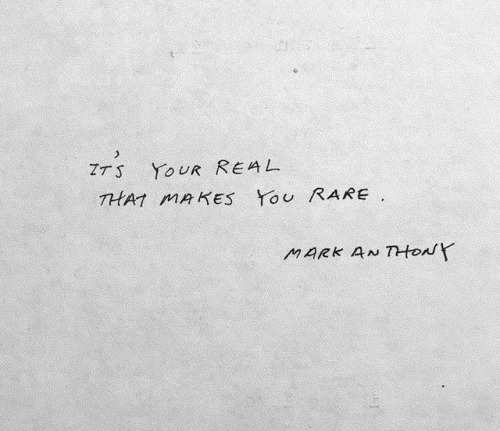 IT'S YOUR REAL
THAT MAKES YOU RARE.
MARK ANTHONY